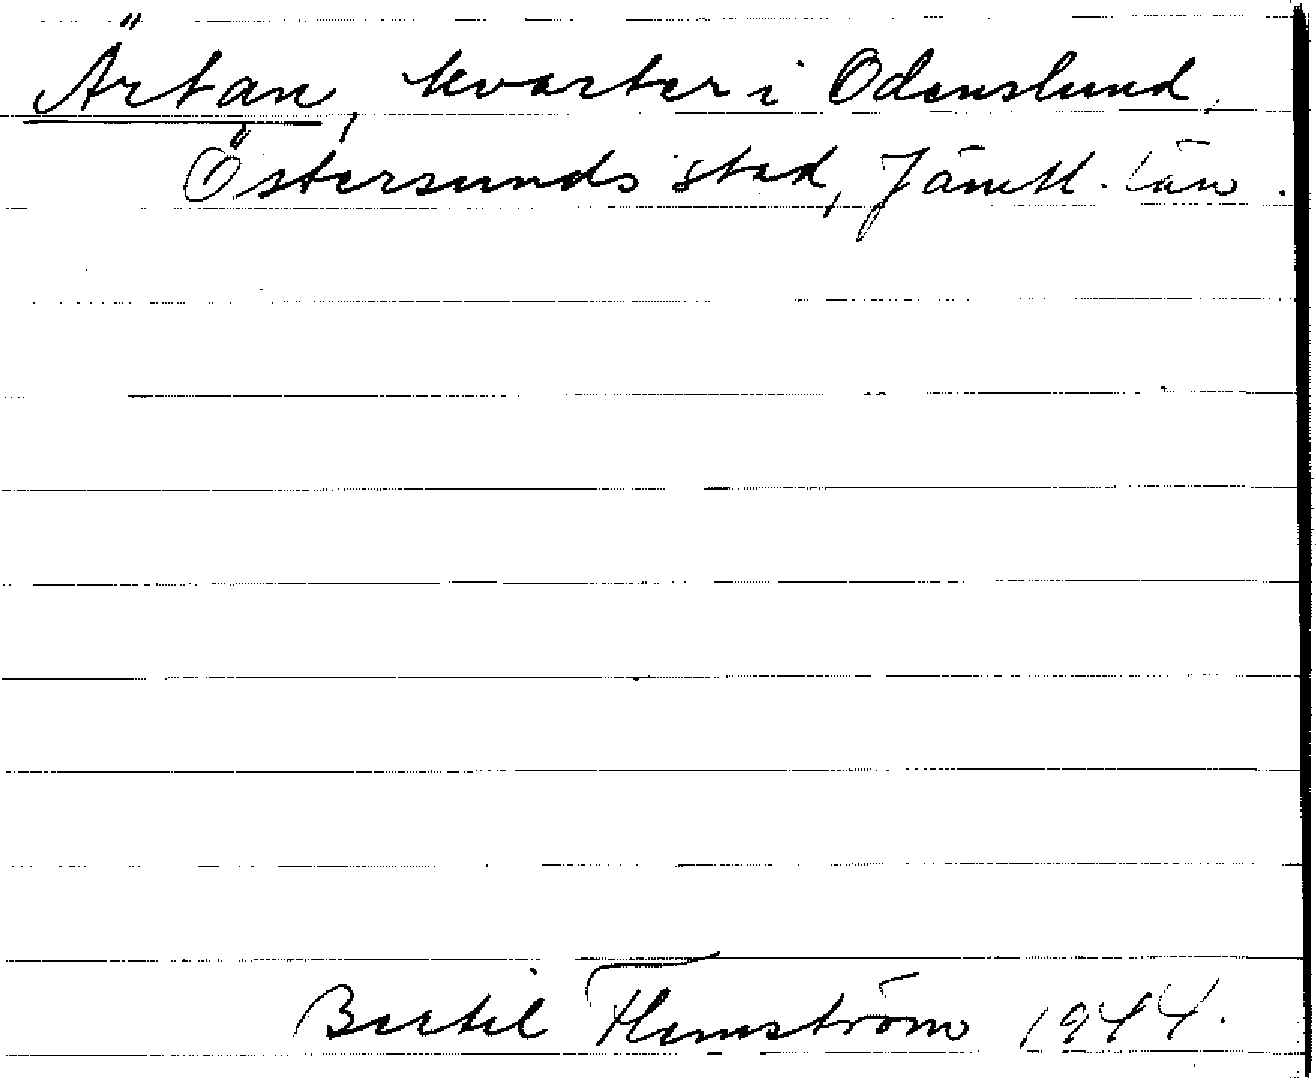 Ärtan, kvarter i Odenslund,
Östersunds stad, Jämtl. län.
Bertil Flemström 1944.